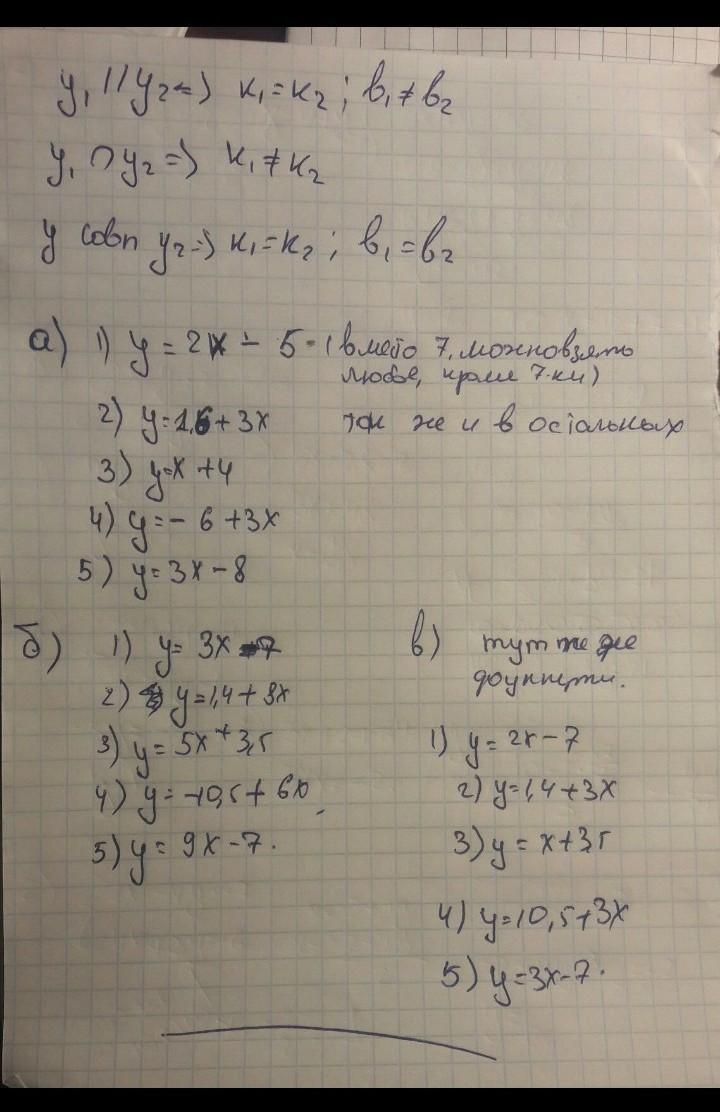 y₁ // y₂ => к₁ = к₂ ; в₁ ≠ в₂
y₁ ∩ y₂ => к₁ ≠ к₂
y совп y₂ => к₁ = к₂ ; в₁ = в₂
а) 1) y = 2x - 5 - (вместо 7, можно взять
любое, кроме 7-ки)
2) y = 1,6 + 3x так же и в остальных
3) y = x + 4
4) y = - 6 + 3x
5) y = 3x - 8
б) 1) y = 3x - 7
2) y = 1,4 + 8x
3) y = 5x + 3,5
4) y = -10,5 + 6x
5) y = 9x - 7.
в) тут те же
функции.
1) y = 2x - 7
2) y = 1,4 + 3x
3) y = x + 3,5
4) y = 10,5 + 3x
5) y = 3x - 7.